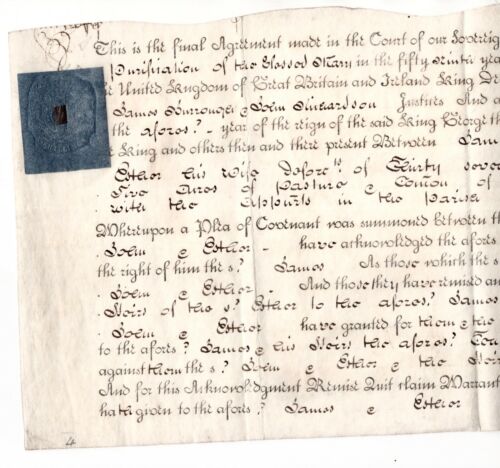 This is the final Agreement made in the Court of our Sovereig
Purification of the Blessed Mary in the fifty ninth yea
United Kingdom of Great Britain and Ireland King De
James Burrough & John Richardson Justices And
the afores.d year of the reign of the said King George th
King and others then and there present Between
Esther his Wife Deforc.ts of Thirty seve
Five Acres of Pasture & Com̅on of
with the Appurts in the Parish
Whereupon a Plea of Covenant was summoned between th
John & Esther have acknowledged the afores
the right of him the s.d James As those which the s
John & Esther And those they have remised an
Heirs of the s.d Esther to the afores.d James
John & Esther have granted for them & the
to the afores.d James & his Heirs the afores.d Ten
against them the s.d John & Esther & the Heir
And for this Acknowledgment Remise Quit claim Warrant
hath given to the afores.d James & Esther
4